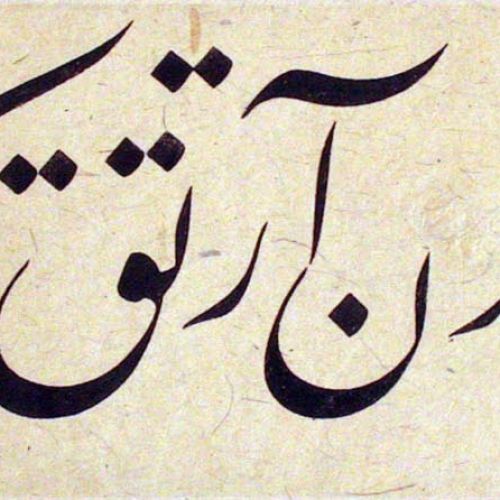 ن آرتق